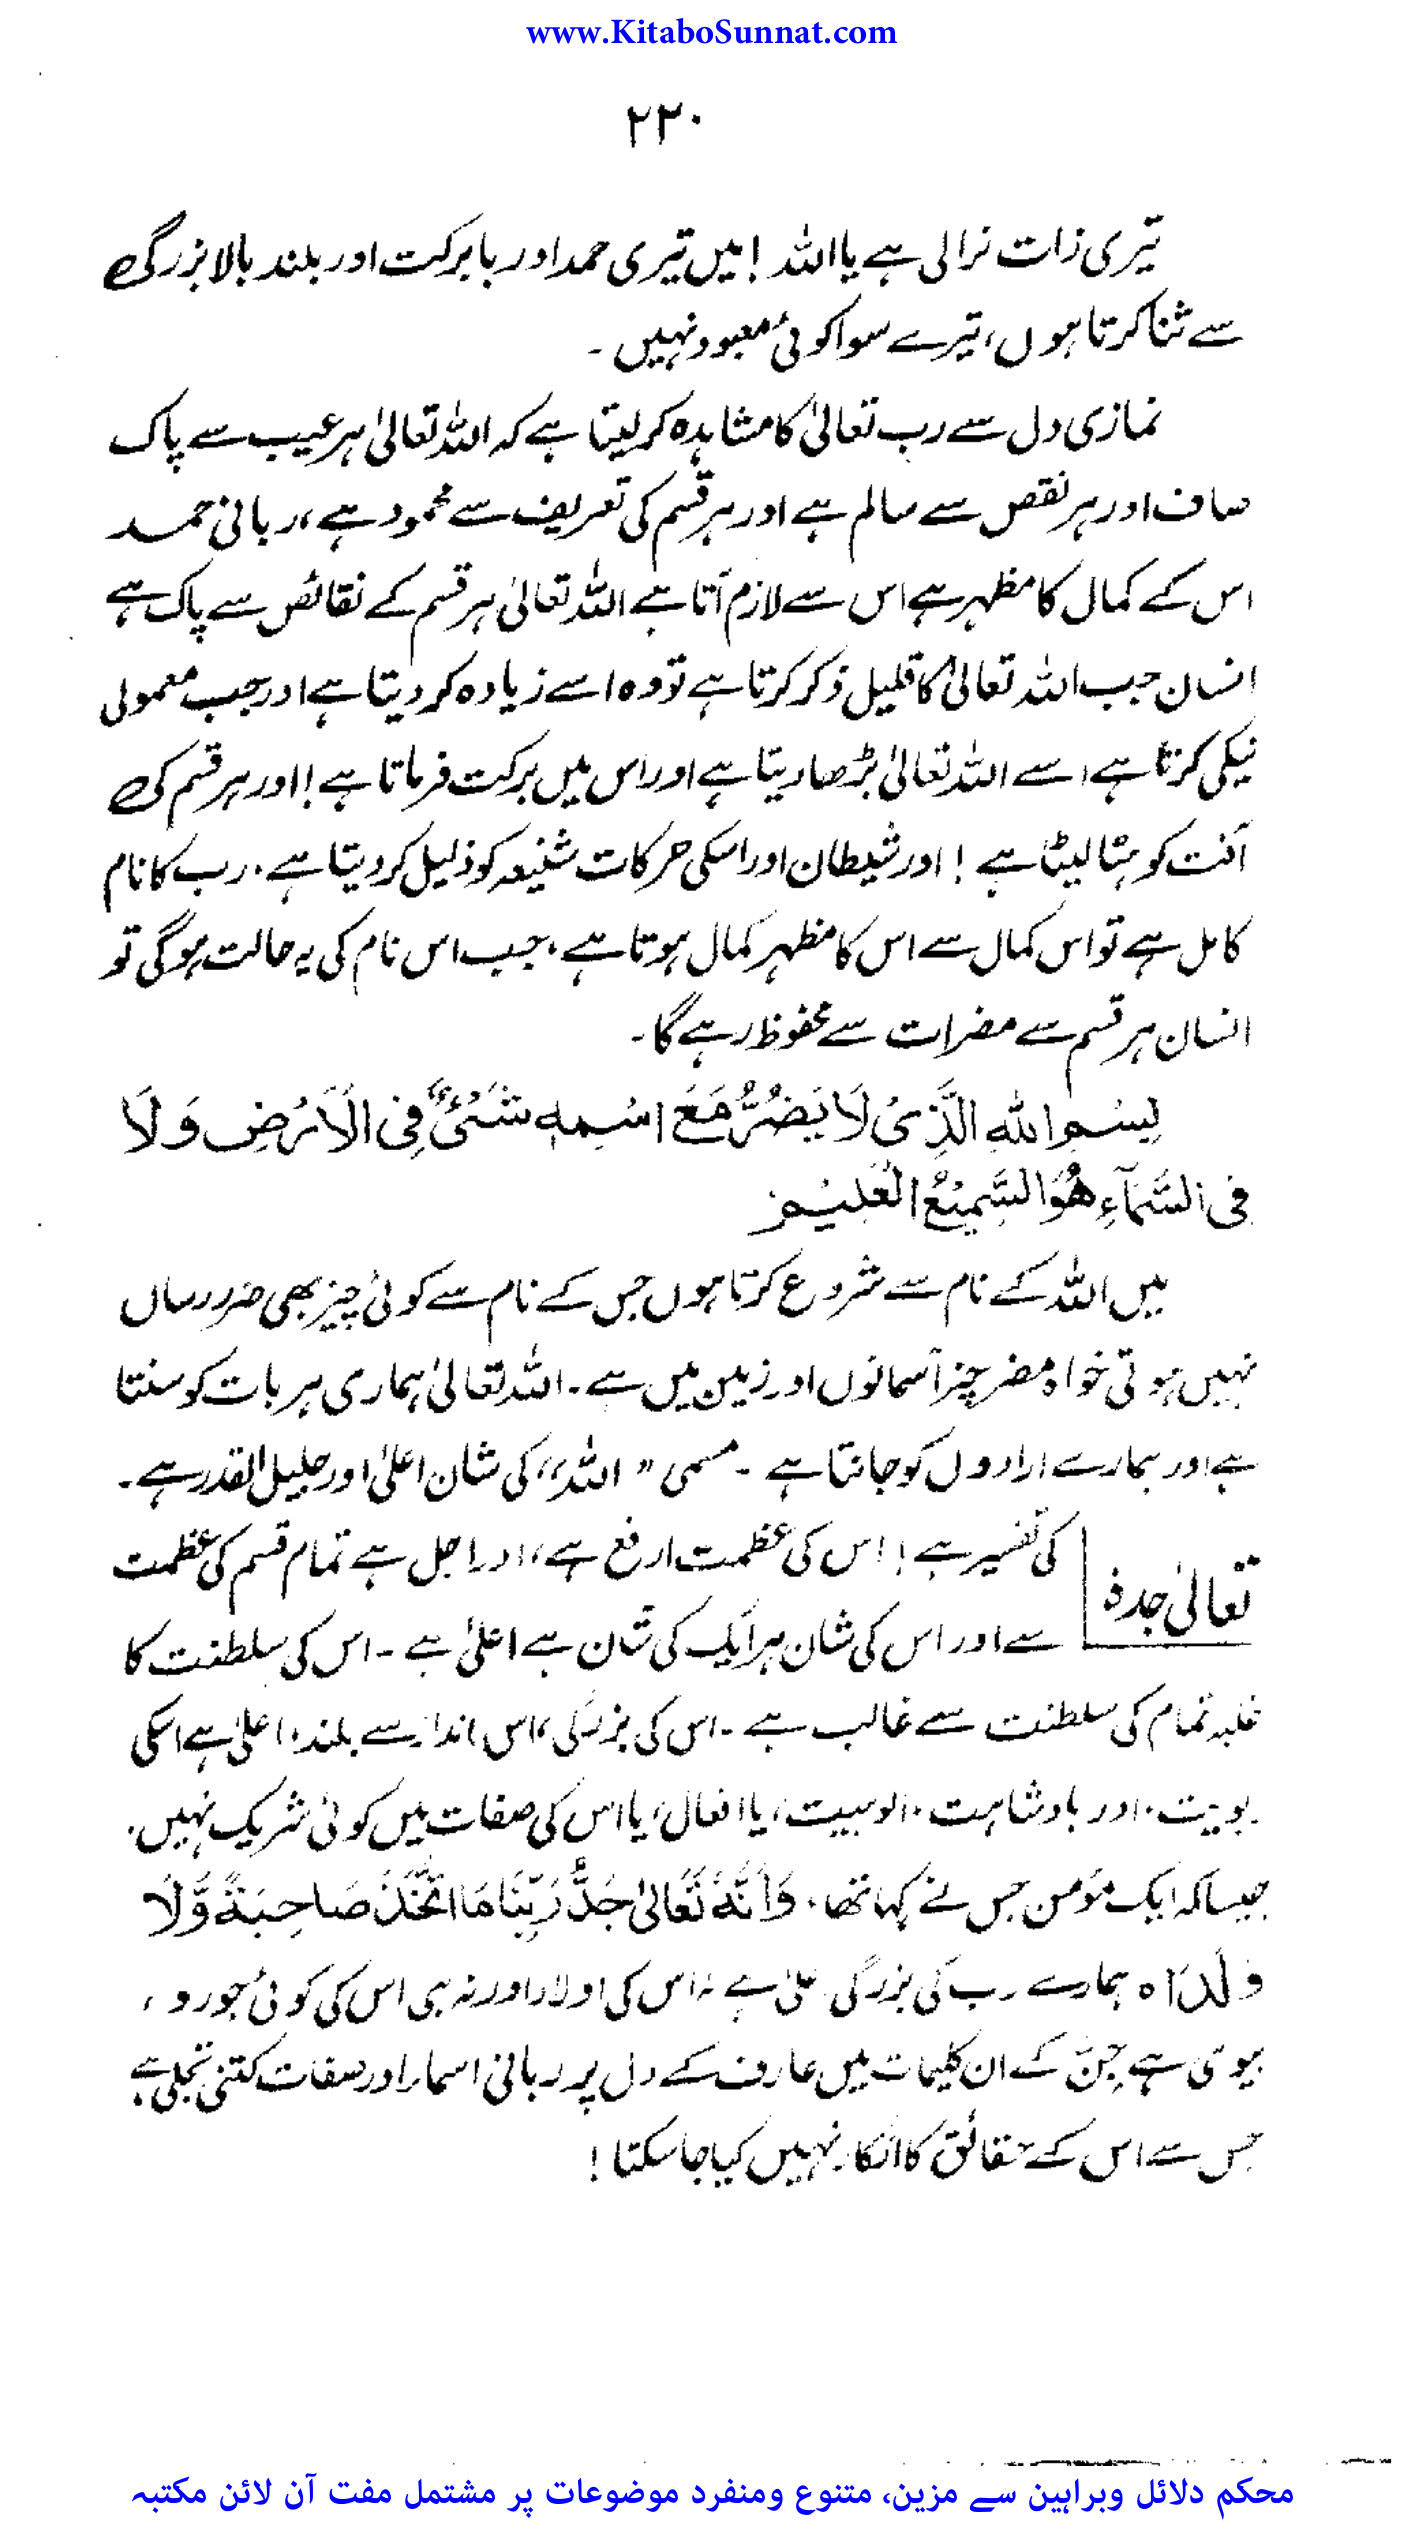 www.KitaboSunnat.com
۲۲۰
تیری ذات نرالی ہے یا اللہ ! میں تیری حمد اور بابرکت اور بلند بالا بزرگی
سے ثنا کرتا ہوں، تیرے سوا کوئی معبود نہیں ۔
نمازی دل سے رب تعالیٰ کا مشاہدہ کر لیتا ہے کہ اللہ تعالیٰ ہر عیب سے پاک
صاف اور ہر نقص سے سالم ہے اور ہر قسم کی تعریف سے محمود ہے، ربانی حمد
اس کے کمال کا مظہر ہے اس سے لازم آتا ہے اللہ تعالیٰ ہر قسم کے نقائص سے پاک ہے
انسان جب اللہ تعالیٰ کا قلیل ذکر کرتا ہے تو وہ اسے زیادہ کر دیتا ہے اور جب معمولی
نیکی کرتا ہے اسے اللہ تعالیٰ بڑھا دیتا ہے اور اس میں برکت فرماتا ہے ! اور ہر قسم کی
آفت کو ہٹا لیتا ہے ! اور شیطان اور اسکی حرکات شنیعہ کو ذلیل کر دیتا ہے ۔ رب کا نام
کامل ہے تو اس کمال سے اس کا مظہر کمال ہوتا ہے، جب اس نام کی یہ حالت ہوگی تو
انسان ہر قسم سے مضرات سے محفوظ رہے گا ۔
بِسْمِ اللهِ الَّذِیْ لَا یَضُرُّ مَعَ اسْمِهٖ شَیْئٌ فِی الْاَرْضِ وَلَا
فِی السَّمَآءِ هُوَ السَّمِیْعُ الْعَلِیْمُ
میں اللہ کے نام سے شروع کرتا ہوں جس کے نام سے کوئی چیز بھی ضرر رساں
نہیں ہوتی خواہ مضر چیز آسمانوں اور زمین میں ہے ۔ اللہ تعالیٰ ہماری ہر بات کو سنتا
ہے اور ہمارے ارادوں کو جانتا ہے ۔ مسمی " اللہ " کی شان اعلیٰ اور جلیل القدر ہے ۔
تعالیٰ جدہ کی تفسیر ہے ! اس کی عظمت ارفع ہے، اور اجل ہے تمام قسم کی عظمت
سے اور اس کی شان ہر ایک کی شان سے اعلیٰ ہے ۔ اس کی سلطنت کا
غلبہ تمام کی سلطنت سے غالب ہے ۔ اس کی بزرگی، اس انداز سے بلند، اعلیٰ ہے اسکی
ربوبیت، اور بادشاہت، الوہیت، یا افعال، یا اس کی صفات میں کوئی شریک نہیں ۔
جیسا کہ ایک مؤمن جس نے کہا تھا ۔ وَاَنَّهٗ تَعَالیٰ جَدُّ رَبِّنَا مَا اتَّخَذَ صَاحِبَةً وَّلَا
وَلَدًا ہ ہمارے رب کی بزرگی علیٰ ہے نہ اس کی اولاد اور نہ ہی اس کی کوئی جورو ،
بیوی ہے جن کے ان کلیمات میں عارف کے دل پر ربانی اسمار اور صفات کتنی تجلی ہے
جس سے اس کے حقائق کا انکار نہیں کیا جا سکتا !
محکم دلائل وبراہین سے مزین، متنوع ومنفرد موضوعات پر مشتمل مفت آن لائن مکتبہ